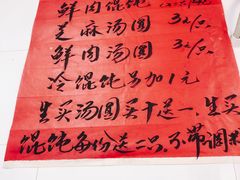 鲜肉馄饨
芝麻汤圆 32/点
鲜肉汤圆 32/点
冷馄饨另加1元
生买汤圆买十送一,生买
馄饨每份送二只,不带调料